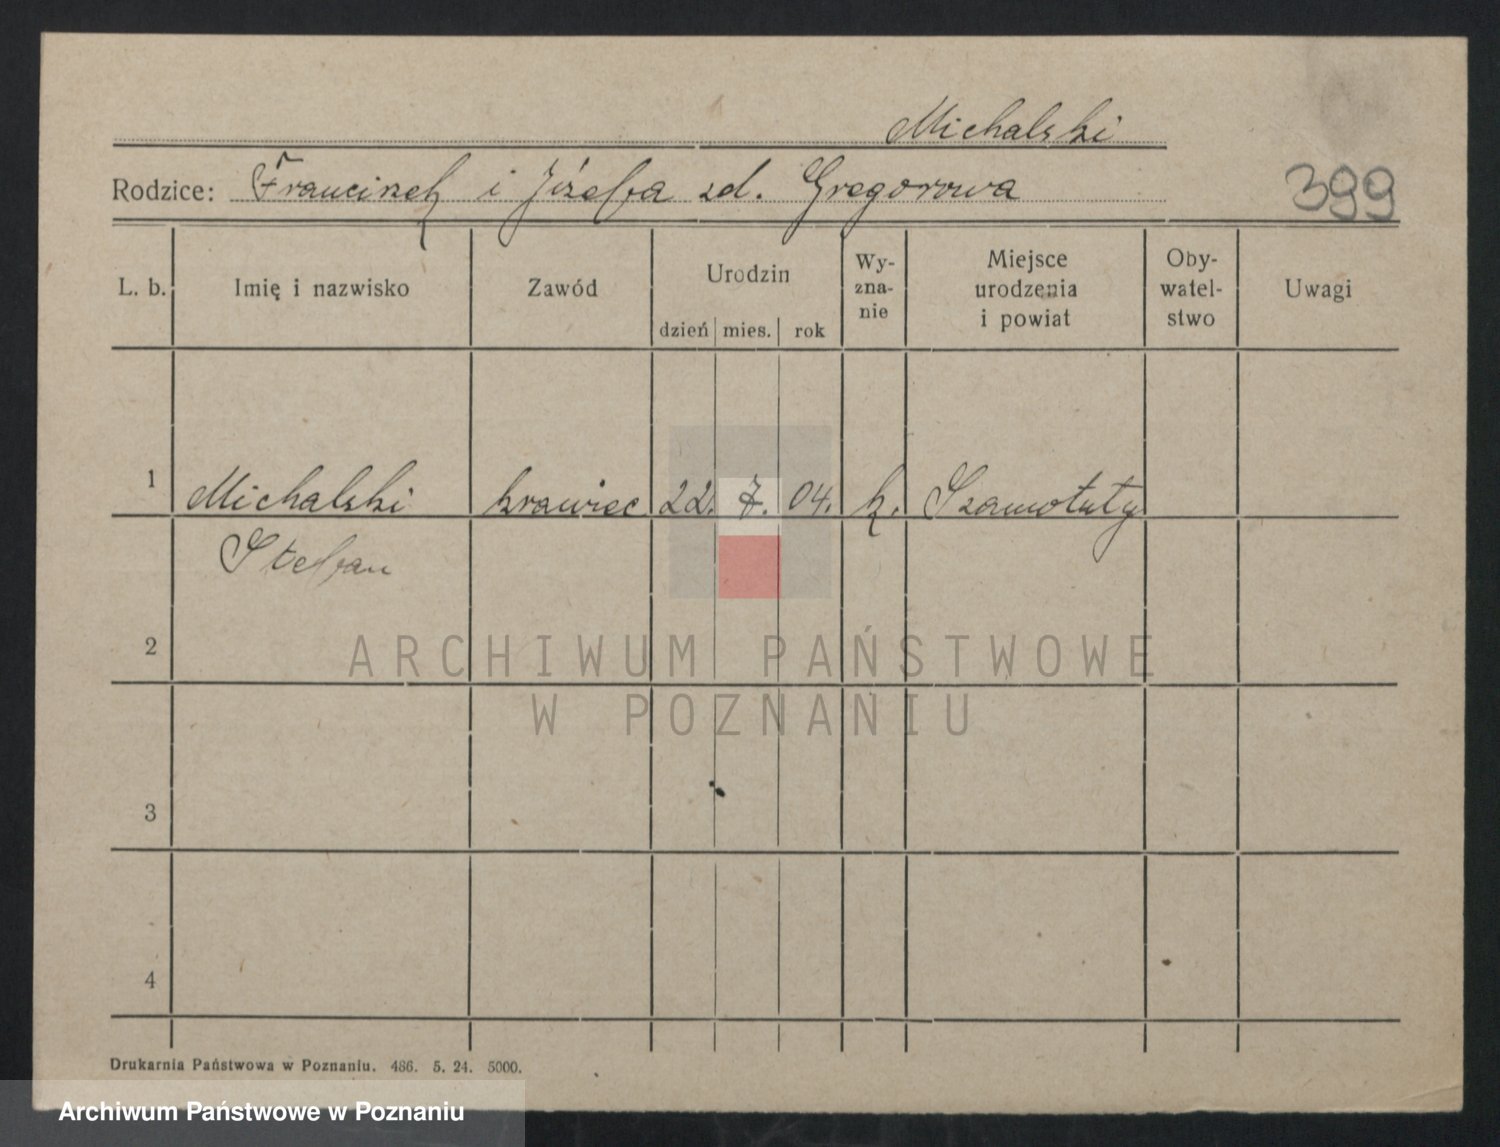 Michalski
Rodzice: Franciszek i Józefa zd. Gregorowa
399
L. b. Imię i nazwisko Zawód Urodzin dzień mies. rok Wy-zna-nie Miejsce urodzenia i powiat Oby-watel-stwo Uwagi
1 Michalski krawiec 22. 7. 04. k. Szamotuły
Stefan
2
ARCHIWUM PAŃSTWOWE
W POZNANIU
3
4
Drukarnia Państwowa w Poznaniu. 486. 5. 24. 5000.
Archiwum Państwowe w Poznaniu